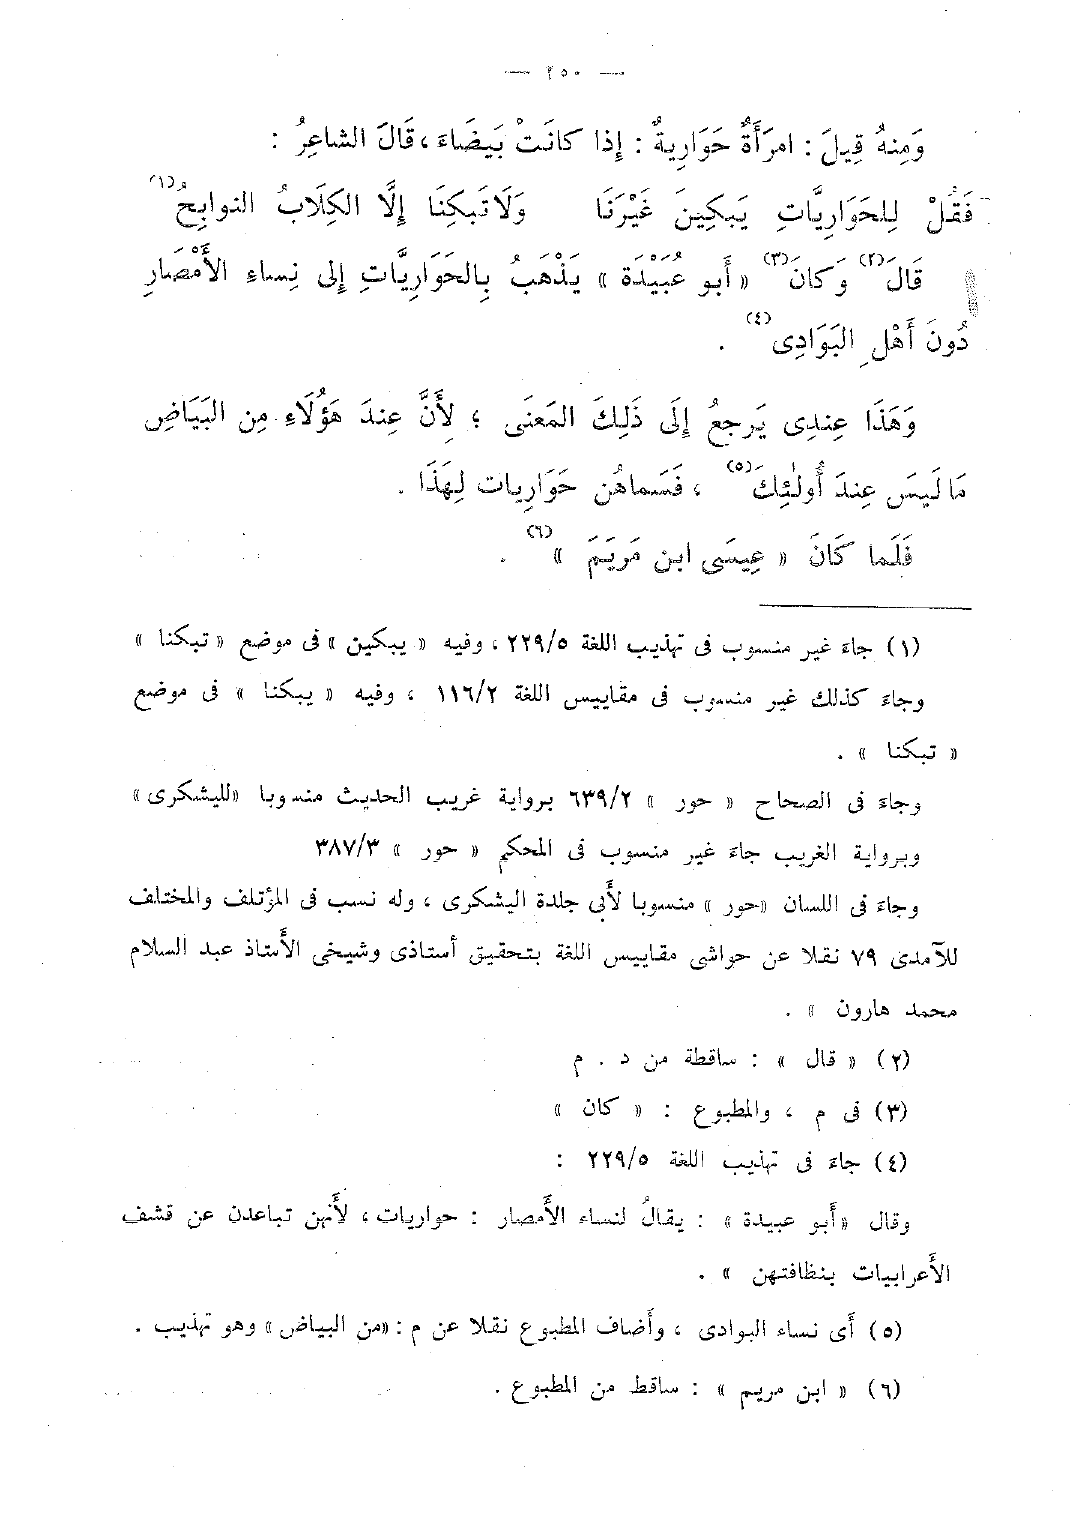 — ٢٥٠ —
وَمِنهُ قِيلَ : امرَأَةٌ حَوَارِيةٌ : إِذا كانَتْ بَيضَاءَ ، قَالَ الشاعِرُ :
فَقُلْ لِلحَوَارِيَّاتِ يَبكِينَ غَيْرَنَا وَلَا تَبكِنَا إِلَّا الكِلَابُ النوابِحُ (١)
قَالَ (٢) وَكانَ (٣) « أَبو عُبَيْدَةَ » يَذْهَبُ بِالحَوَارِيَّاتِ إِلى نِساءِ الأَمْصَارِ
دُونَ أَهْلِ البَوَادِى (٤) .
وَهَذَا عِندِى يَرجعُ إِلَى ذَلِكَ المَعنَى ؛ لِأَنَّ عِندَ هَؤُلَاءِ مِن البَيَاضِ
مَا لَيسَ عِندَ أُولٰئِكَ (٥) ، فَسَماهُن حَوَارِيات لِهَذَا .
فَلَما كَانَ « عِيسَى ابن مَريَمَ » (٦) .
(١) جاءَ غير منسوب فى تهذيب اللغة ٢٢٩/٥ ، وفيه « يبكين » فى موضع « تبكنا »
وجاءَ كذلك غير منسوب فى مقاييس اللغة ١١٦/٢ ، وفيه « يبكنا » فى موضع
« تبكنا » .
وجاءَ فى الصحاح « حور » ٦٣٩/٢ برواية غريب الحديث منسوبا «لليشكرى»
وبرواية الغريب جاءَ غير منسوب فى المحكم « حور » ٣٨٧/٣
وجاءَ فى اللسان «حور» منسوبا لأَبى جلدة اليشكرى ، وله نسب فى المؤتلف والمختلف
للآمدى ٧٩ نقلا عن حواشى مقاييس اللغة بتحقيق أستاذى وشيخى الأَستاذ عبد السلام
محمد هارون » .
(٢) « قال » : ساقطة من د . م
(٣) فى م ، والمطبوع : « كان »
(٤) جاءَ فى تهذيب اللغة ٢٢٩/٥ :
وقال «أَبو عبيدة » : يقالُ لنساء الأَمصار : حواريات ، لأَنهن تباعدن عن قشف
الأَعرابيات بنظافتهن » .
(٥) أَى نساء البوادى ، وأَضاف المطبوع نقلا عن م : «من البياض» وهو تهذيب .
(٦) « ابن مريم » : ساقط من المطبوع .